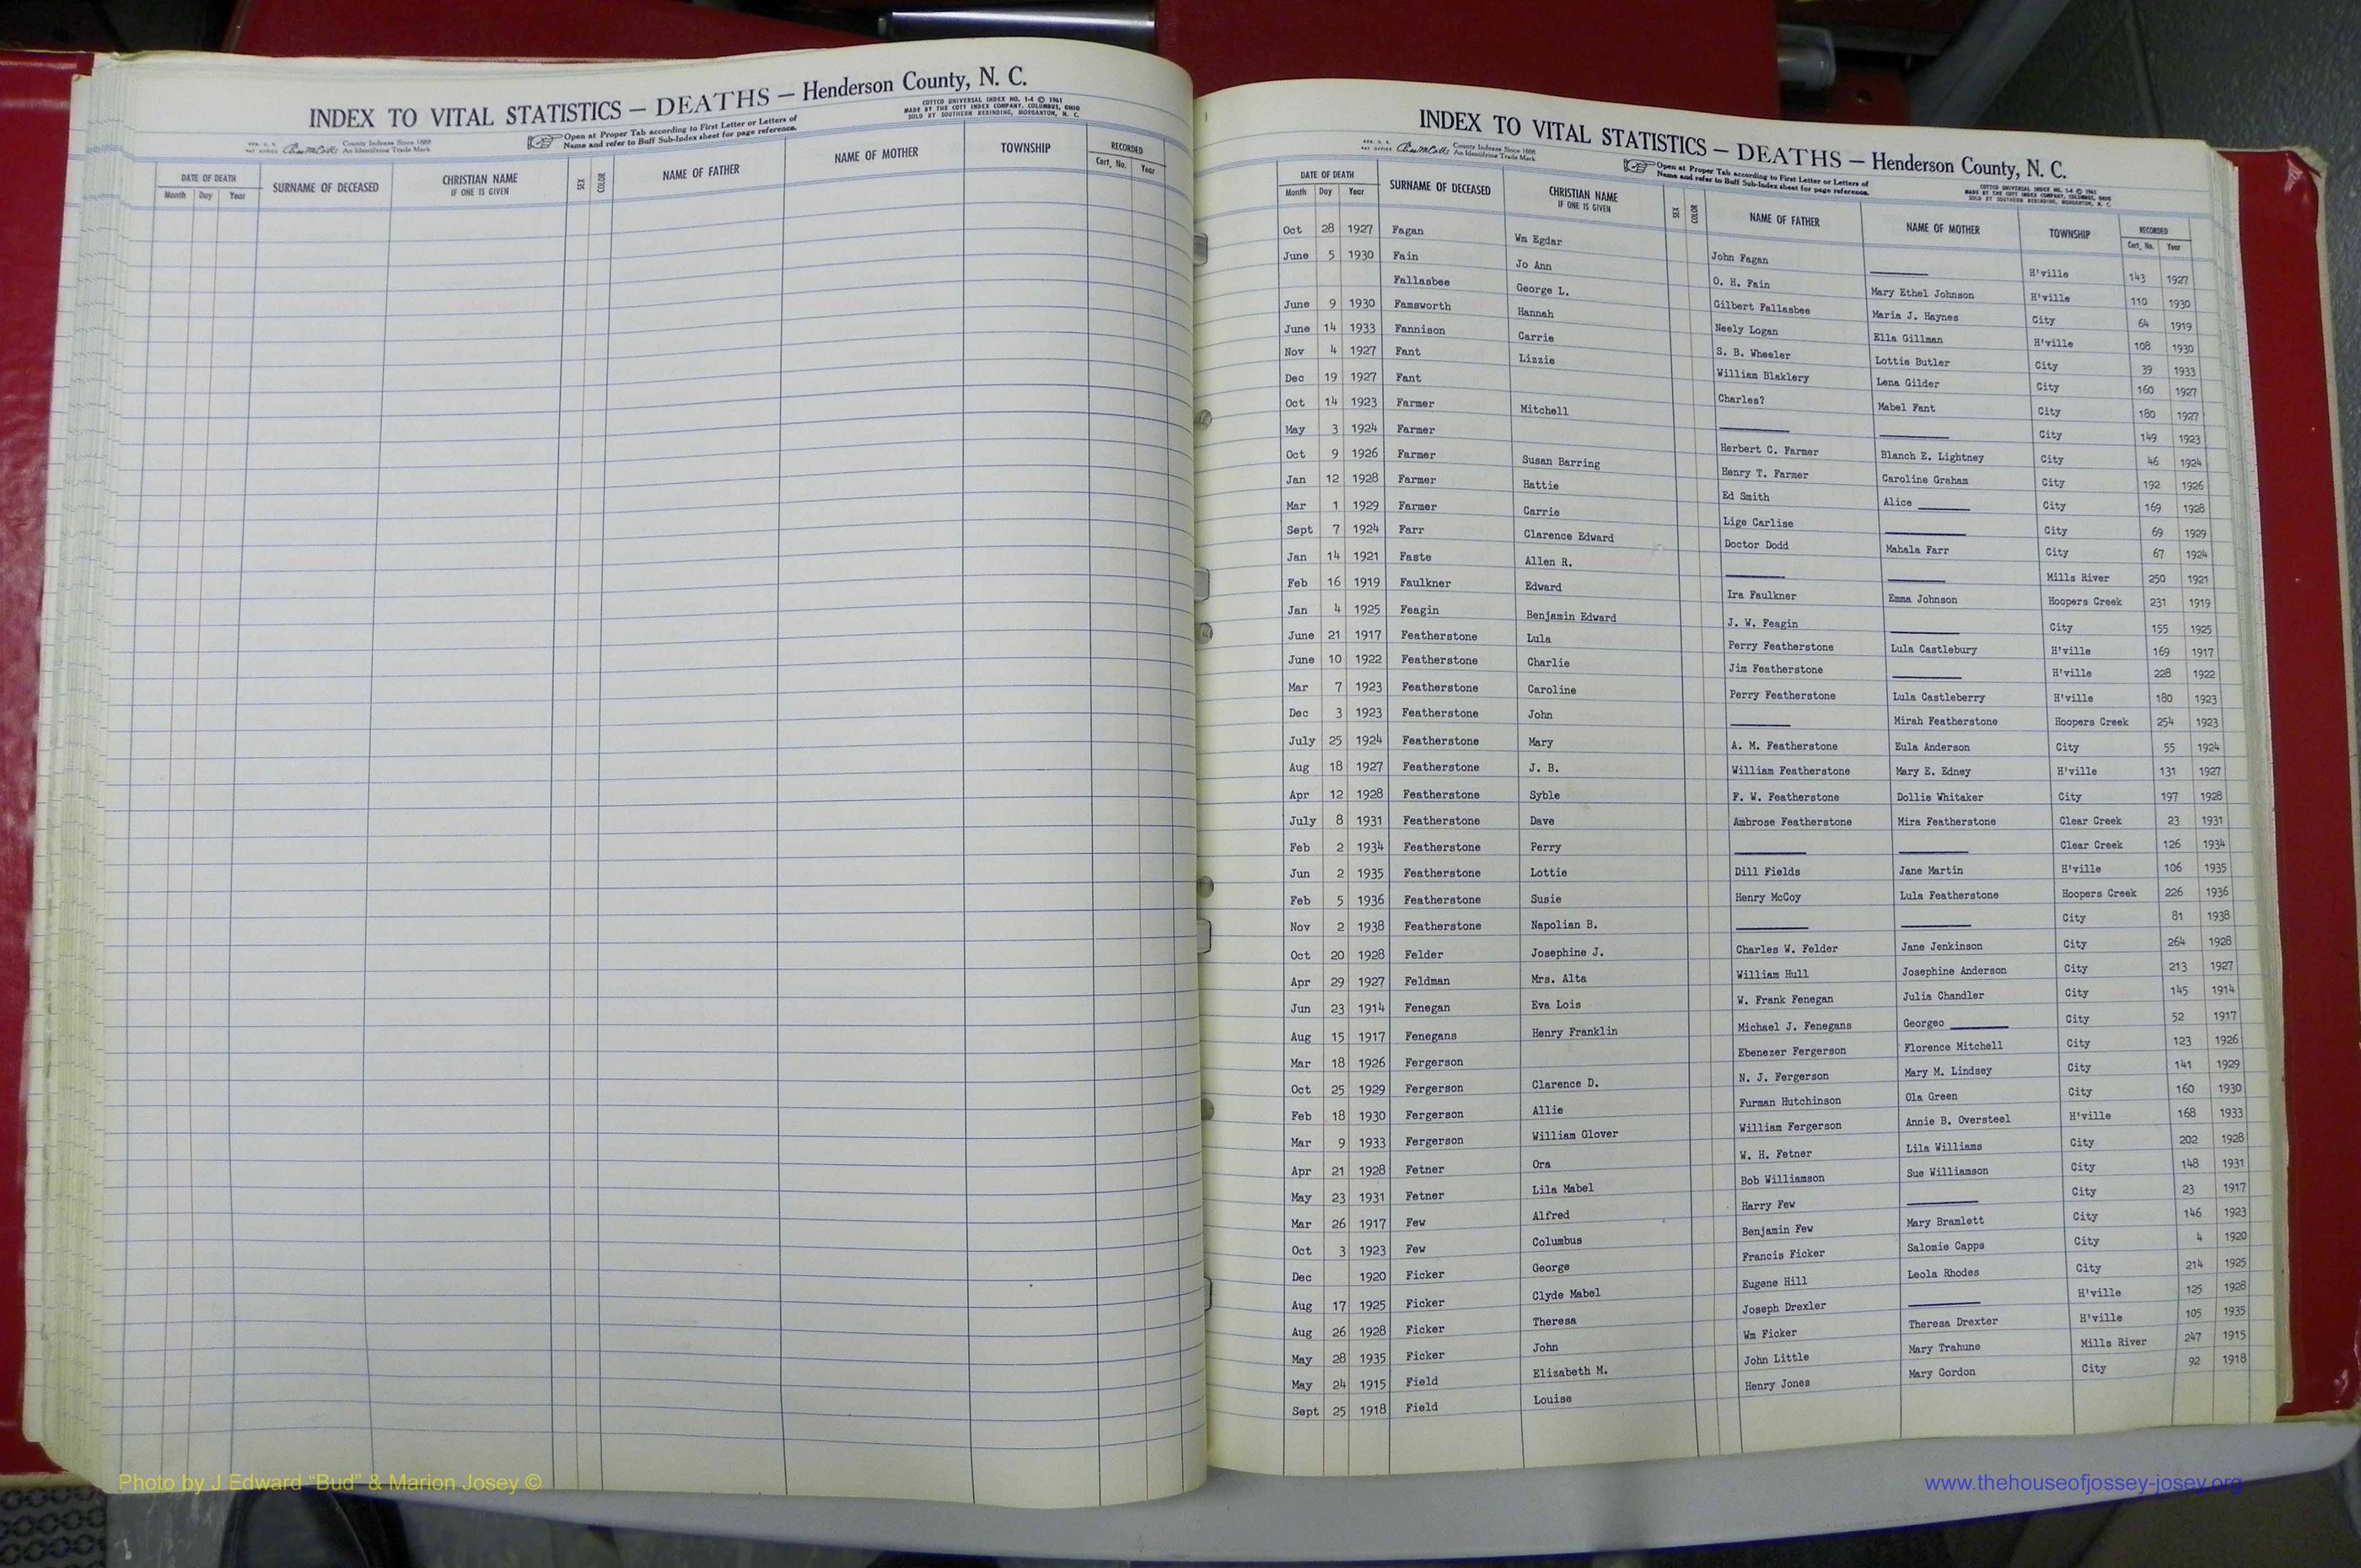 INDEX TO VITAL STATISTICS — DEATHS — Henderson County, N. C.
COTTCO UNIVERSAL INDEX NO. 1-4 © 1961
MADE BY THE COTT INDEX COMPANY, COLUMBUS, OHIO
SOLD BY SOUTHERN REBINDING, MORGANTON, N. C.
County Indexes Since 1888
An Identifying Trade Mark
Open at Proper Tab according to First Letter or Letters of
Name and refer to Buff Sub-Index sheet for page reference.
DATE OF DEATH
Month Day Year
SURNAME OF DECEASED
CHRISTIAN NAME
IF ONE IS GIVEN
SEX
COLOR
NAME OF FATHER
NAME OF MOTHER
TOWNSHIP
RECORDED
Cert. No. Year
INDEX TO VITAL STATISTICS — DEATHS — Henderson County, N. C.
COTTCO UNIVERSAL INDEX NO. 1-4 © 1961
MADE BY THE COTT INDEX COMPANY, COLUMBUS, OHIO
SOLD BY SOUTHERN REBINDING, MORGANTON, N. C.
County Indexes Since 1888
An Identifying Trade Mark
Open at Proper Tab according to First Letter or Letters of
Name and refer to Buff Sub-Index sheet for page reference.
DATE OF DEATH
Month Day Year
SURNAME OF DECEASED
CHRISTIAN NAME
IF ONE IS GIVEN
SEX
COLOR
NAME OF FATHER
NAME OF MOTHER
TOWNSHIP
RECORDED
Cert. No. Year
Oct 28 1927 Fagan Wm Egdar John Fagan ______ H'ville 143 1927
June 5 1930 Fain Jo Ann O. H. Fain Mary Ethel Johnson H'ville 110 1930
Fallasbee George L. Gilbert Fallasbee Maria J. Haynes City 64 1919
June 9 1930 Famsworth Hannah Neely Logan Ella Gillman H'ville 108 1930
June 14 1933 Fannison Carrie S. B. Wheeler Lottie Butler City 39 1933
Nov 4 1927 Fant Lizzie William Blaklery Lena Gilder City 160 1927
Dec 19 1927 Fant Charles? Mabel Fant City 180 1927
Oct 14 1923 Farmer Mitchell ______ ______ City 149 1923
May 3 1924 Farmer Herbert C. Farmer Blanch E. Lightney City 46 1924
Oct 9 1926 Farmer Susan Barring Henry T. Farmer Caroline Graham City 192 1926
Jan 12 1928 Farmer Hattie Ed Smith Alice ______ City 169 1928
Mar 1 1929 Farmer Carrie Lige Carlise ______ City 69 1929
Sept 7 1924 Farr Clarence Edward Doctor Dodd Mahala Farr City 67 1924
Jan 14 1921 Faste Allen R. ______ ______ Mills River 250 1921
Feb 16 1919 Faulkner Edward Ira Faulkner Emma Johnson Hoopers Creek 231 1919
Jan 4 1925 Feagin Benjamin Edward J. W. Feagin ______ City 155 1925
June 21 1917 Featherstone Lula Perry Featherstone Lula Castlebury H'ville 169 1917
June 10 1922 Featherstone Charlie Jim Featherstone ______ H'ville 228 1922
Mar 7 1923 Featherstone Caroline Perry Featherstone Lula Castleberry H'ville 180 1923
Dec 3 1923 Featherstone John ______ Mirah Featherstone Hoopers Creek 254 1923
July 25 1924 Featherstone Mary A. M. Featherstone Eula Anderson City 55 1924
Aug 18 1927 Featherstone J. B. William Featherstone Mary E. Edney H'ville 131 1927
Apr 12 1928 Featherstone Syble F. W. Featherstone Dollie Whitaker City 197 1928
July 8 1931 Featherstone Dave Ambrose Featherstone Mira Featherstone Clear Creek 23 1931
Feb 2 1934 Featherstone Perry ______ ______ Clear Creek 126 1934
Jun 2 1935 Featherstone Lottie Dill Fields Jane Martin H'ville 106 1935
Feb 5 1936 Featherstone Susie Henry McCoy Lula Featherstone Hoopers Creek 226 1936
Nov 2 1938 Featherstone Napolian B. ______ ______ City 81 1938
Oct 20 1928 Felder Josephine J. Charles W. Felder Jane Jenkinson City 264 1928
Apr 29 1927 Feldman Mrs. Alta William Hull Josephine Anderson City 213 1927
Jun 23 1914 Fenegan Eva Lois W. Frank Fenegan Julia Chandler City 145 1914
Aug 15 1917 Fenegans Henry Franklin Michael J. Fenegans Georgeo ______ City 52 1917
Mar 18 1926 Fergerson Ebenezer Fergerson Florence Mitchell City 123 1926
Oct 25 1929 Fergerson Clarence D. N. J. Fergerson Mary M. Lindsey City 141 1929
Feb 18 1930 Fergerson Allie Furman Hutchinson Ola Green City 160 1930
Mar 9 1933 Fergerson William Glover William Fergerson Annie B. Oversteel H'ville 168 1933
Apr 21 1928 Fetner Ora W. H. Fetner Lila Williams City 202 1928
May 23 1931 Fetner Lila Mabel Bob Williamson Sue Williamson City 148 1931
Mar 26 1917 Few Alfred Harry Few ______ City 23 1917
Oct 3 1923 Few Columbus Benjamin Few Mary Bramlett City 146 1923
Dec 1920 Ficker George Francis Ficker Salomie Capps City 4 1920
Aug 17 1925 Ficker Clyde Mabel Eugene Hill Leola Rhodes City 214 1925
Aug 26 1928 Ficker Theresa Joseph Drexler ______ H'ville 125 1928
May 28 1935 Ficker John Wm Ficker Theresa Drexter H'ville 105 1935
May 24 1915 Field Elizabeth M. John Little Mary Trahune Mills River 247 1915
Sept 25 1918 Field Louise Henry Jones Mary Gordon City 92 1918
Photo by J Edward "Bud" & Marion Josey ©
www.thehouseofjossey-josey.org